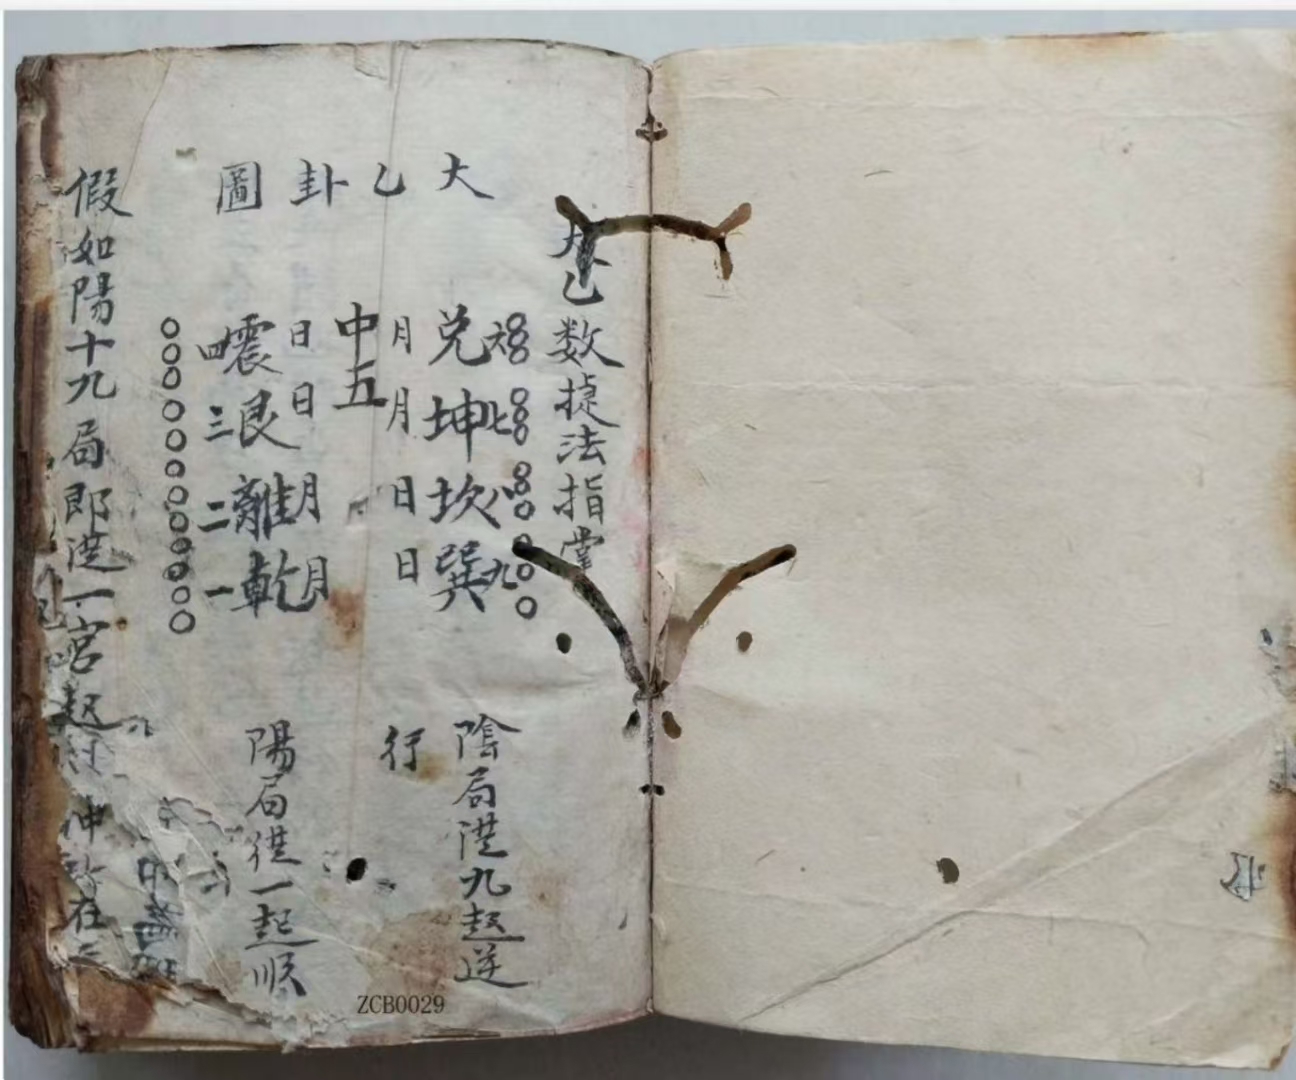 乙数捷法指掌
大乙卦圖
兌六
坤七
坎八
巽九
月月日日
中五
日日月月
震四
艮三
離二
乾一
陰局從九起逆
行
陽局從一起順
假如陽十九局即從一宮起
ZCB0029